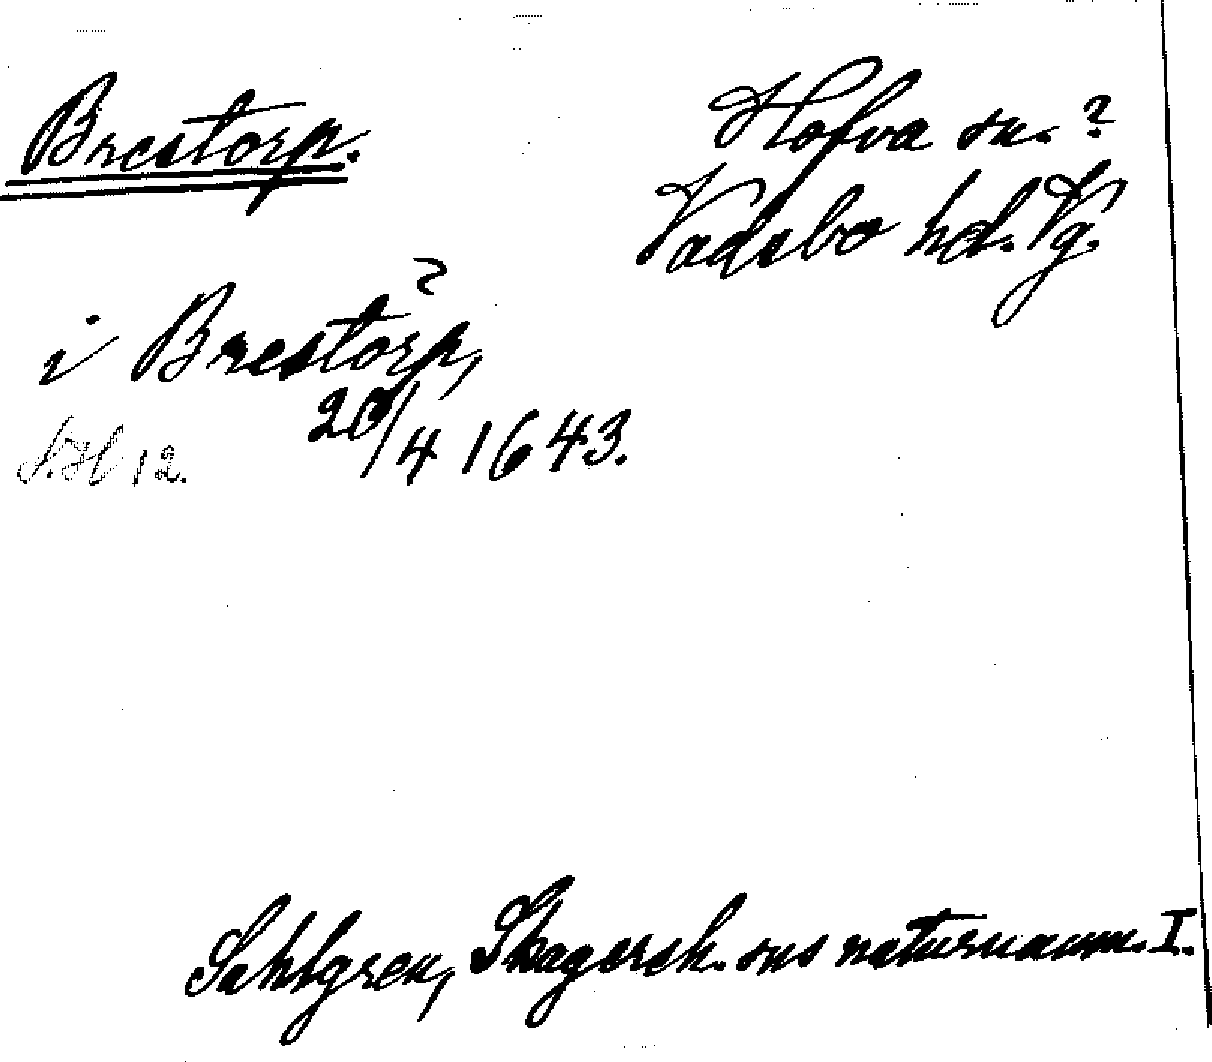 Brestorp.
Hofva sn. ?
Vadsbo hd. Vg.
?
i Brestorp,
20/4 1643.
S. H 12.
Sahlgren, Skagersh. sns naturnamn. I.